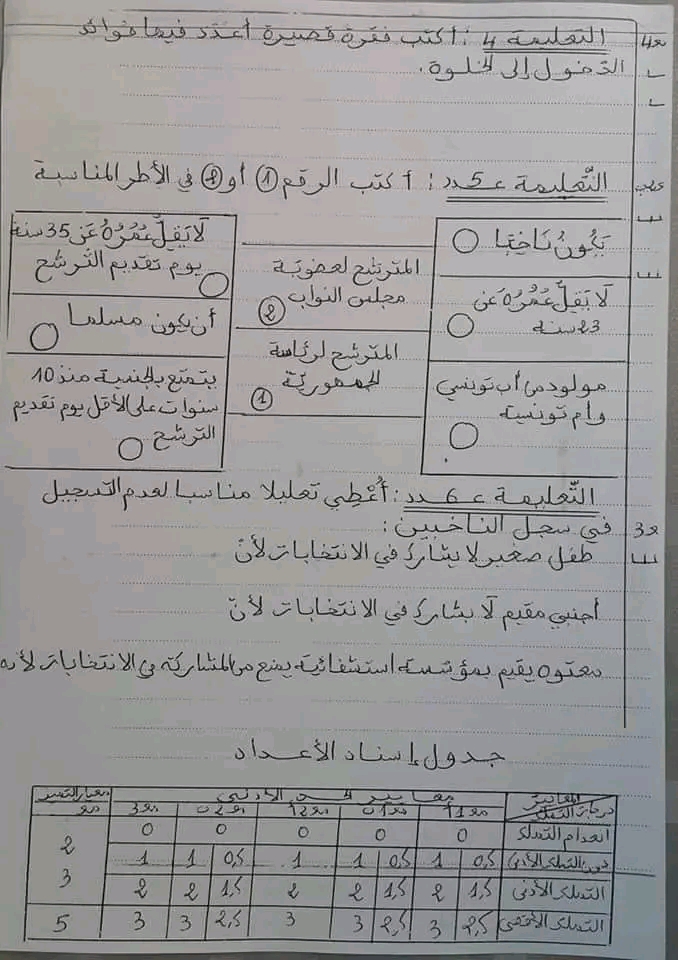 التعليمة 4 : أكتب فقرة قصيرة أعدد فيها فوائد
مع4
الدخول إلى الخلوة.
التعليمة عـ5ـدد : أكتب الرقم 1 أو 2 في الأطر المناسبة
يكُونُ نَاخِبًا
لَا يَقِلُّ عُمُرُهُ عَن
23 سنة
مولود من أب تونسي
وأم تونسية
المترشح لعضوية
مجلس النواب
2
المترشح لرئاسة
الجمهورية
1
لَا يَقِلُّ عُمُرُهُ عَن 35 سنة
يوم تقديم الترشح
أن يكون مسلما
يتمتع بالجنسية منذ 10
سنوات على الأقل يوم تقديم
الترشح
التعليمة عـ6ـدد : أُعْطِي تعليلا مناسبا لعدم التسجيل
مع3
في سجل الناخبين :
طفل صغير لا يشارك في الانتخابات لأنّ
أجنبي مقيم لا يشارك في الانتخابات لأنّ
معتوه يقيم بمؤسسة استشفائية يمنع من المشاركة في الانتخابات لأنه
جدول إسناد الأعداد
المعايير
درجة التملك
معايير الحد الأدنى
معيار التميز
مع11 مع01 مع12 مع02 مع3 مع
انعدام التملك 0 0 0 0 0
دون التملك الأدنى 0,5 1 0,5 1 1 0,5 1 1 2
التملك الأدنى 1,5 2 1,5 2 2 1,5 2 2 3
التملك الأقصى 2,5 3 2,5 3 3 2,5 3 3 5